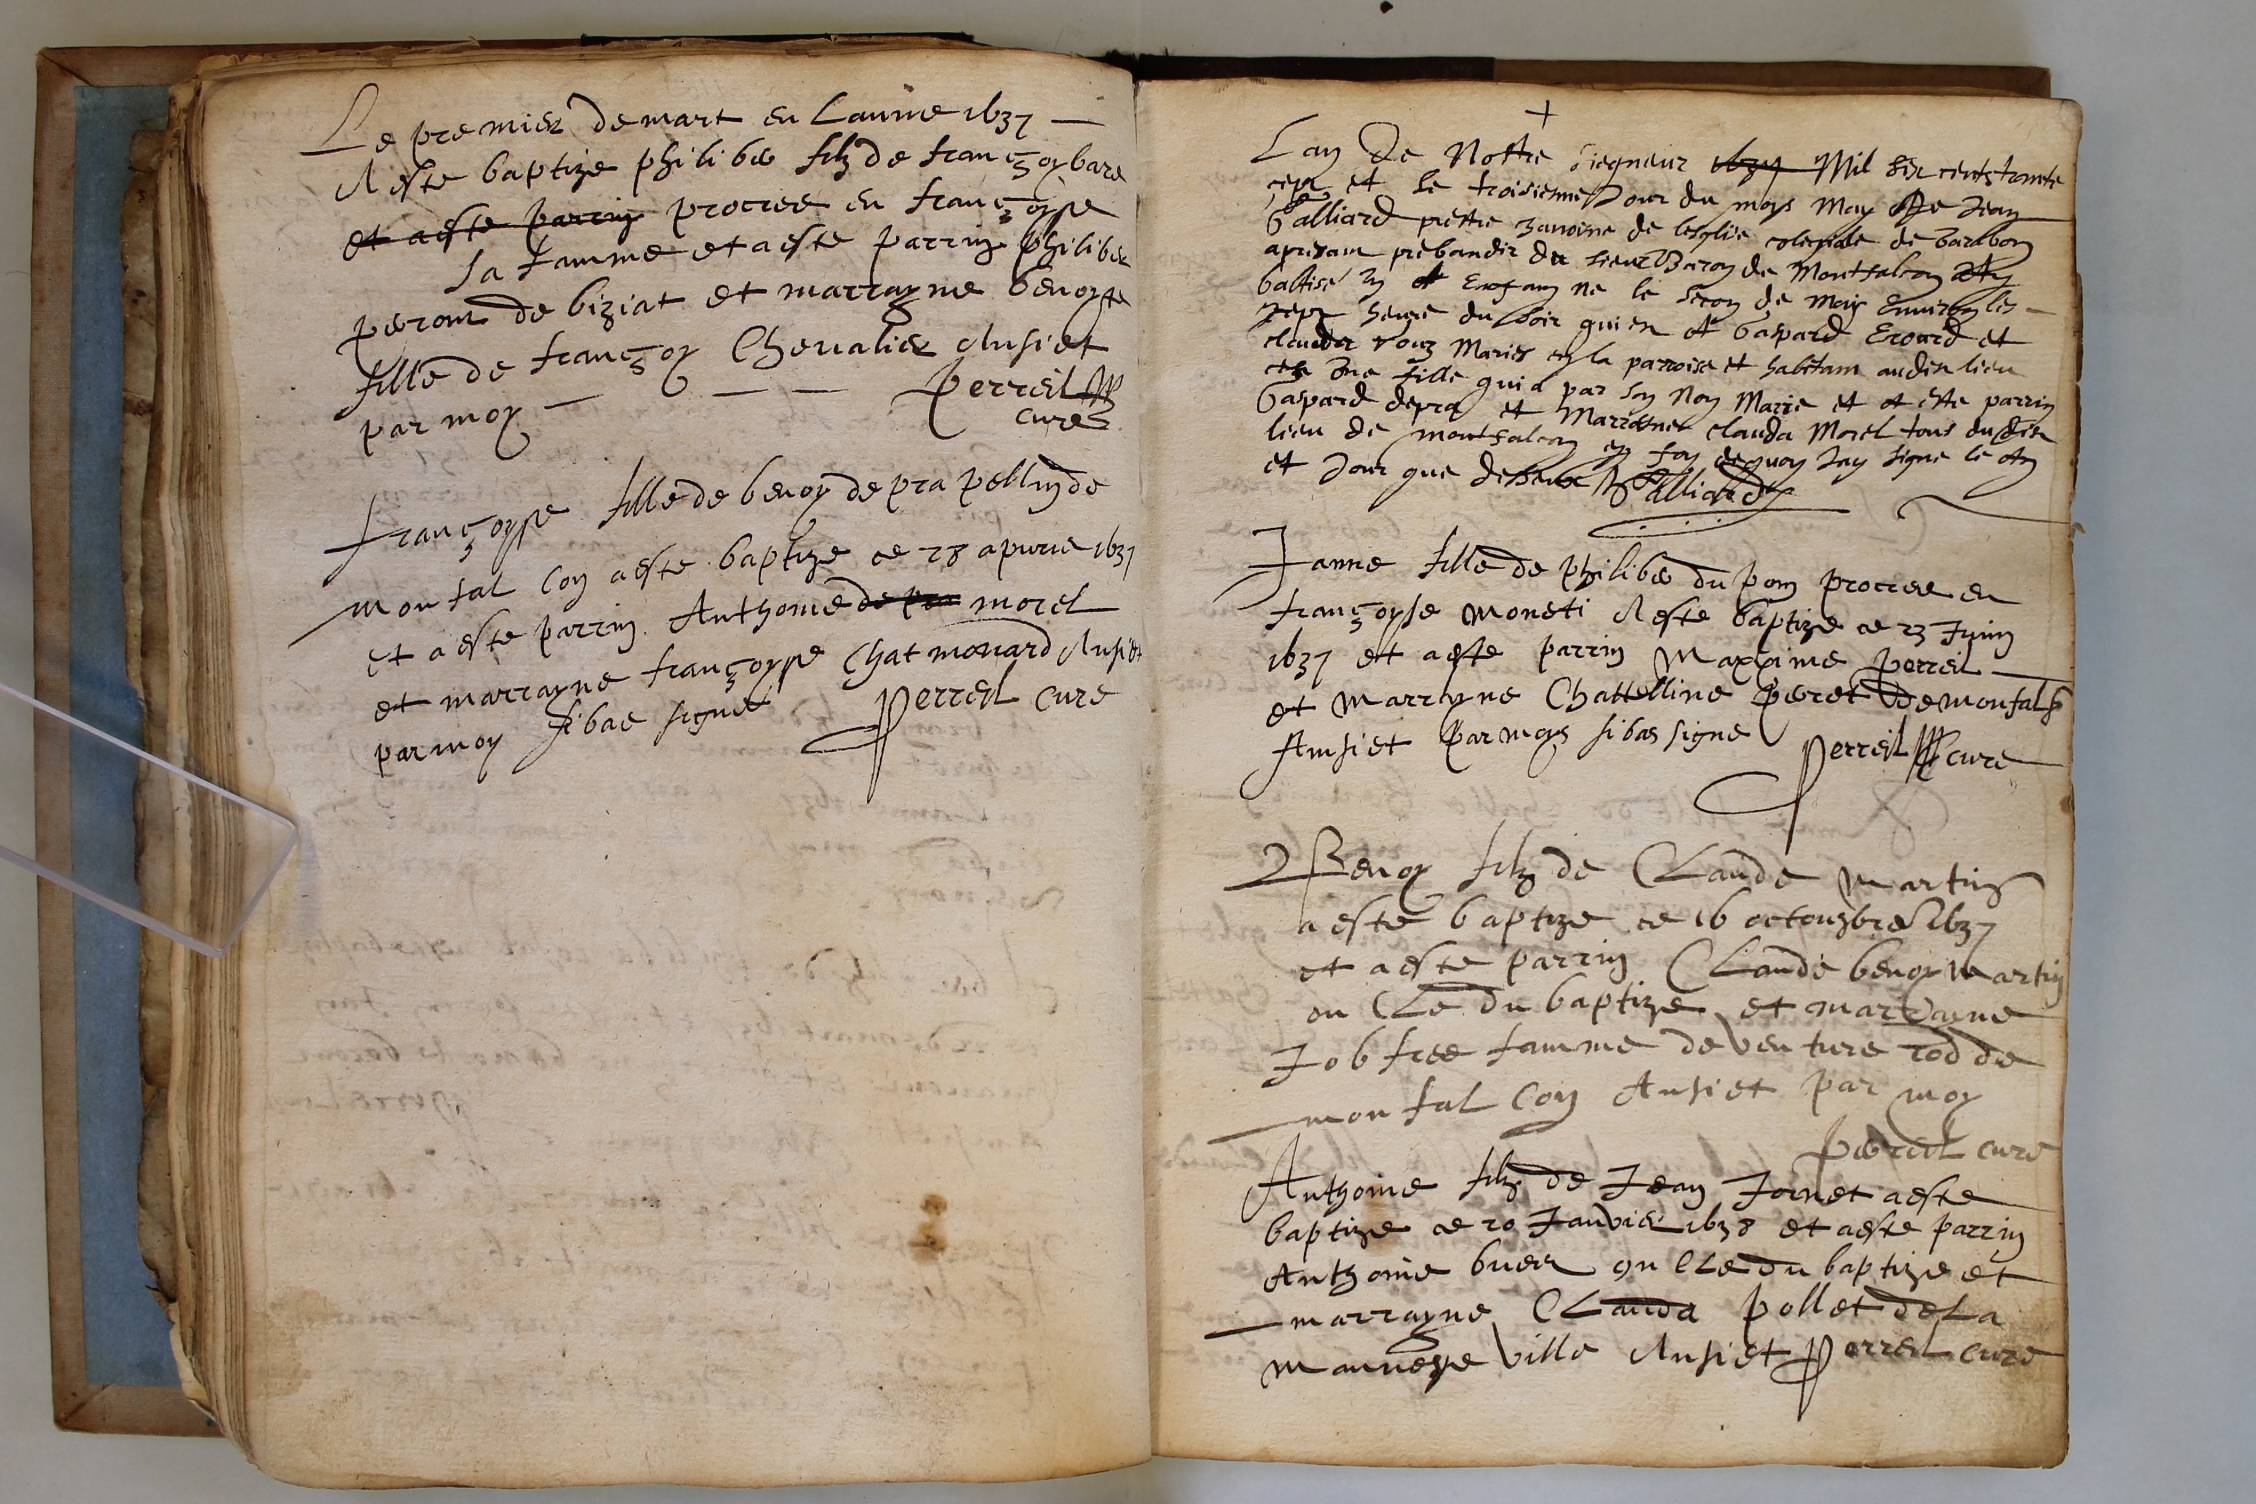 Le premier de mart en Lannee 1637 —
A este baptize philiber filz de françoy bare
et a este parrin procree en françoyse
sa famme et a este parrin philiber
peront de biziat et marrayne benoyte
fille de françoy Chevalier Ansiet
par moy — — — Perreil
cure
françoyse fille de benoy de pra pellin de
monfalcon a este baptize ce 28 apvrie 1637
et a este parrin Anthoine de pra morel
et marrayne françoyse Chatmonard Ansiet
par moy sibas signet Perreil cure
+
Lan De Nostre Siegneur 1637 Mil six cents trante
cept et le troisienne Jour du moys May Je Jean
Galliard prettre chanoine de lesglise colegiale de
apresant prebandir du sieur Baron de Montfalcon
battisé ne le secon de May Environ les —
sept heure du soir qui et Gaspard Erourd et
clauda rouz Mariés en la parroise et habitant audit lieu
une fille qui a par son Nom Marie et a este parrin
Gaspard depra et Marraine clauda Morel tous dudit
lieu de montfalcon en foy dequoy Jay signe le
et Jour que dessus Galliard
Janne fille de philiber du pon procree en
françoyse moneti A este baptize ce 23 Juin
1637 et a este parrin Maxime perreil
et Marrayne Chattelline peret de monfalc
Ansiet par moy sibas signe Perreil cure
Benoy filz de Claude martin
a este baptize ce 16 octoubre 1637
et a este parrin Claude benoy martin
oncle du baptize et marrayne
famme de venture rod de
monfalcon Ansiet par moy
Perreil cure
Anthoine filz de Jean Jornet a este
baptize ce 20 Janvier 1638 et a este parrin
Anthoine buer oncle du baptize et
marrayne Clauda pollet de La
ville Ansiet Perreil cure